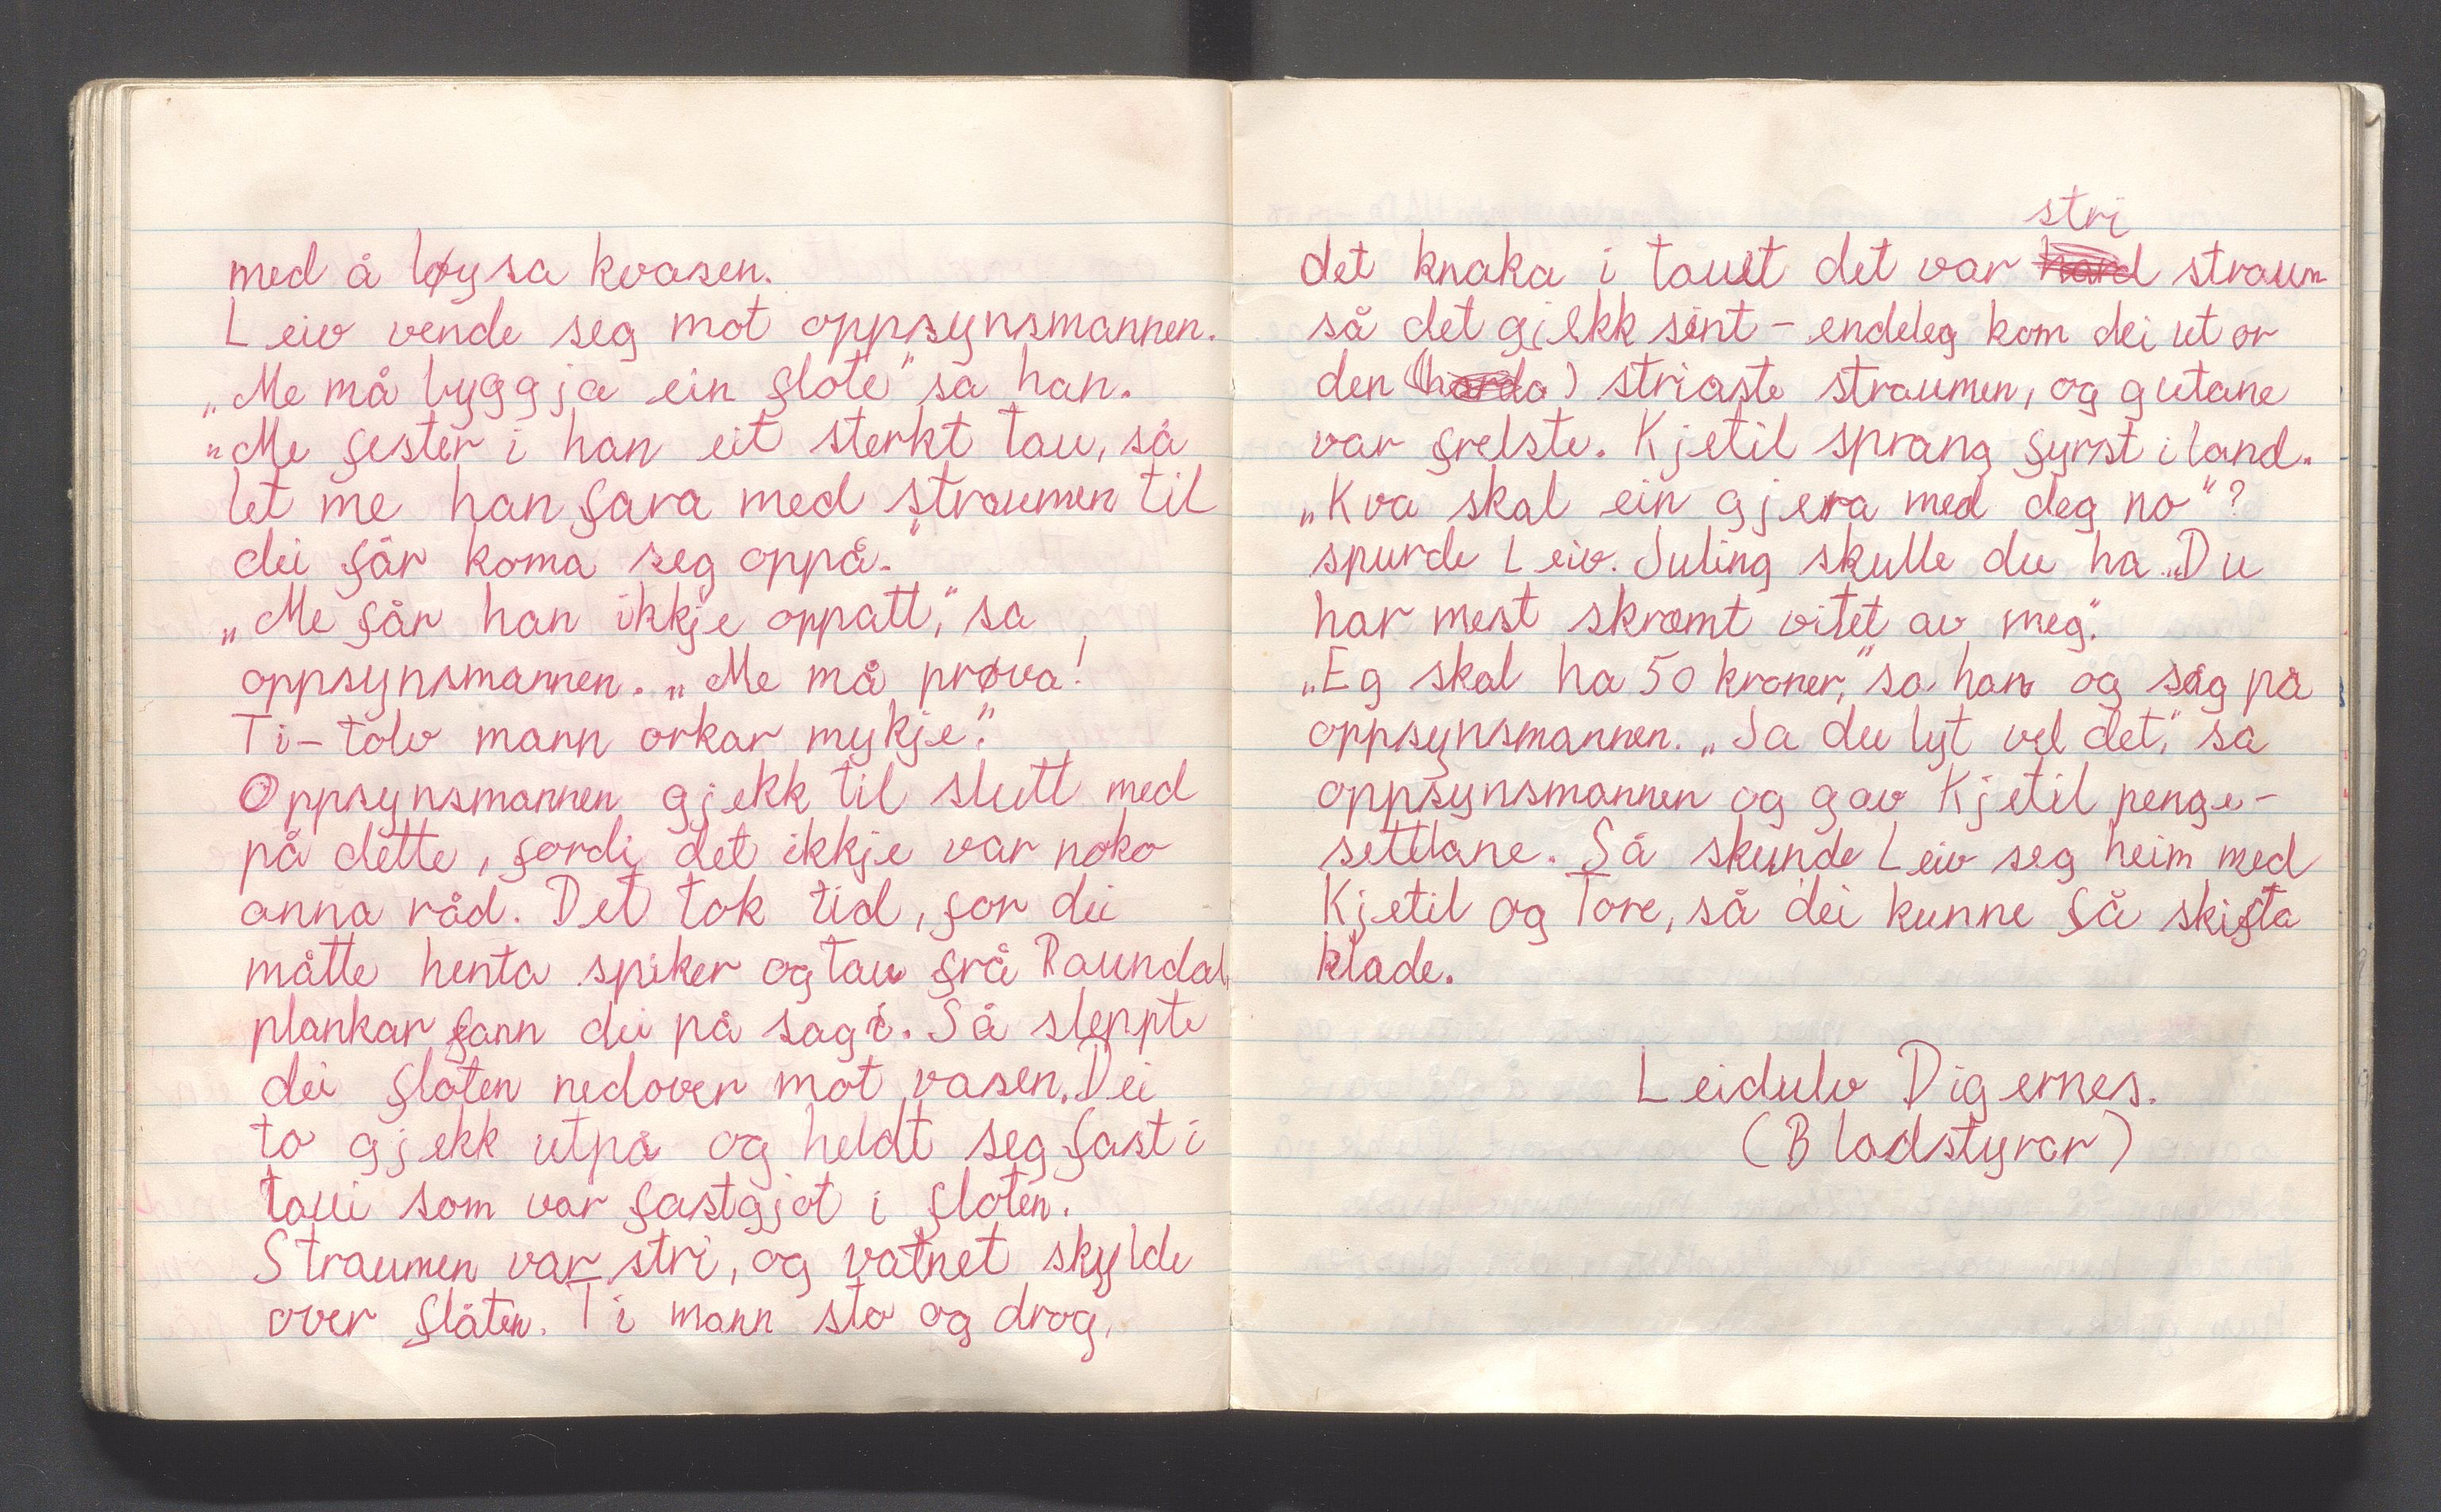 med å løysa kvasen.
Leiv vende seg mot oppsynsmannen.
„Me må byggja ein flote" sa han.
„Me fester i han eit sterkt tau, så
let me han fara med straumen til
dei får koma seg oppå."
„Me får han ikkje oppatt," sa
oppsynsmannen. „Me må prøva!
Ti-tolv mann orkar mykje".
Oppsynsmannen gjekk til slutt med
på dette, fordi det ikkje var noko
anna råd. Det tok tid, for dei
måtte henta spiker og tau frå Raundal,
plankar fann dei på sagi. Så sleppte
dei floten nedover mot vasen. Dei
to gjekk utpå og heldt seg fast i
taui som var fastgjot i floten.
Straumen var stri, og vatnet skylde
over flåten. Ti mann sto og drog,
stri
det knaka i tauet det var hard straum
så det gjekk seint - endeleg kom dei ut or
den (harda) striaste straumen, og gutane
var frelste. Kjetil sprang fyrst i land.
„Kva skal ein gjera med deg no"?
spurde Leiv. Juling skulle du ha. „Du
har mest skræmt vitet av meg".
„Eg skal ha 50 kroner," sa han og såg på
oppsynsmannen. „Ja du lyt vel det," sa
oppsynsmannen og gav Kjetil penge-
setlane. Så skunde Leiv seg heim med
Kjetil og Tore, så dei kunne få skifta
klade.
Leidulv Digernes.
(Bladstyrar)